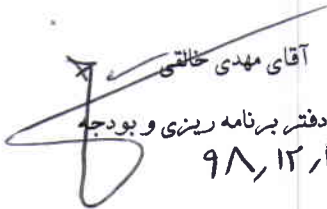 آقای مهدی خالقی
دفتر برنامه ریزی و بودجه
۹۸٫۱۲٫